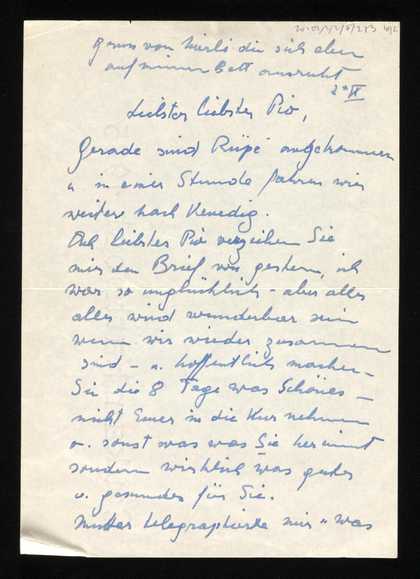 Gruss von Mirli die sich eben
auf meinem Bett ausruht
2ᵗ IX
Liebster liebster Pio,
Gerade sind angekommen
u in einer Stunde fahren wir
weiter nach Venedig.
Ach liebster Pio verzeihen Sie
mir den Brief von gestern, ich
war so unglücklich – aber alles
alles wird wunderbar sein
wenn wir wieder zusammen
sind – u. hoffentlich machen
Sie die 8 Tage was Schönes –
nicht Einer in die Kur nehmen
o. sonst was was Sie hernimmt
sondern wirklich was gutes
u. gesundes für Sie.
Mutter telegraphierte mir "was